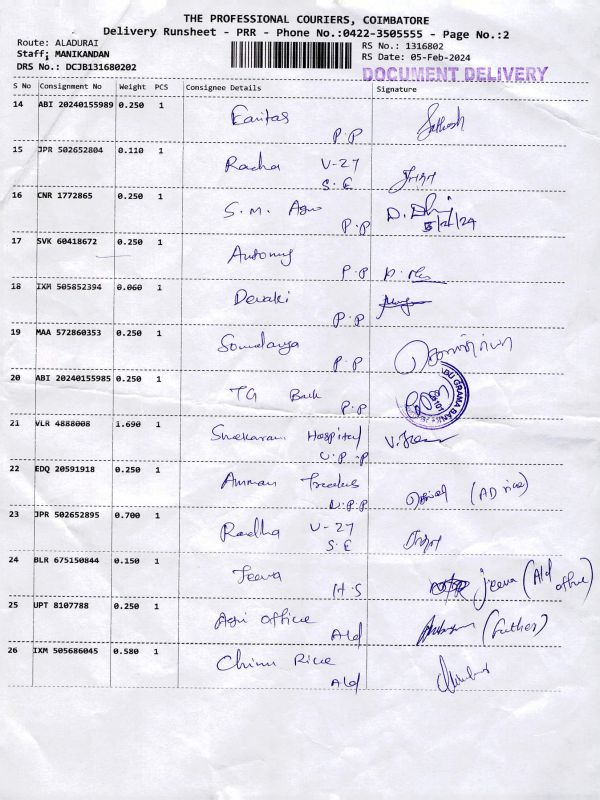 THE PROFESSIONAL COURIERS, COIMBATORE
Delivery Runsheet - PRR - Phone No.:0422-3505555 - Page No.:2
Route: ALADURAI
Staff: MANIKANDAN
DRS No.: DCJB131680202
RS No.: 1316802
RS Date: 05-Feb-2024
DOCUMENT DELIVERY
S No Consignment No Weight PCS Consignee Details Signature
14 ABI 20240155989 0.250 1
P.P
15 JPR 502652804 0.110 1 Radha U-27
S.E
16 CNR 1772865 0.250 1 S.M. Agro
P.P
5/2/24
17 SVK 60418672 0.250 1 Antony
P.P
18 IXM 505852394 0.060 1 Devaki
P.P
19 MAA 572860353 0.250 1 Soundarya
P.P
20 ABI 20240155985 0.250 1 TG Bank
P.P
21 VLR 4888008 1.690 1 Hospital
U.P.P
22 EDQ 20591918 0.250 1 Amman Traders
U.P.P
23 JPR 502652895 0.700 1 Radha U-27
S.E
24 BLR 675150844 0.150 1 Jeeva Jeeva (Ald office)
H.S
25 UPT 8107788 0.250 1 Agri office (Father)
Ald
26 IXM 505686045 0.580 1 Chinu Rice
Ald